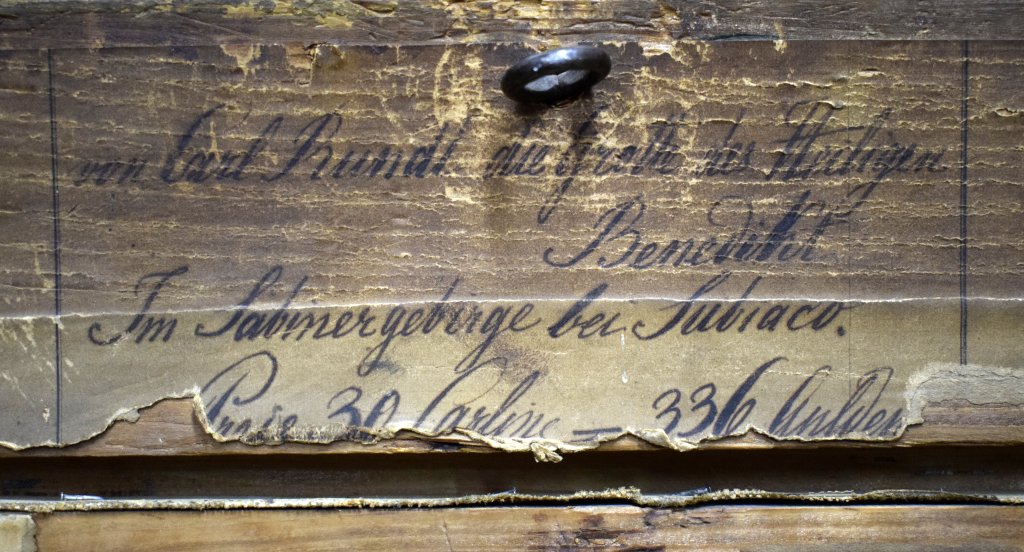 von Carl Rundt die Grotte des Heiligen
Benedikt
Im Sabinergebirge bei Subiaco.
Preis 30 Carline — 336 Gulden